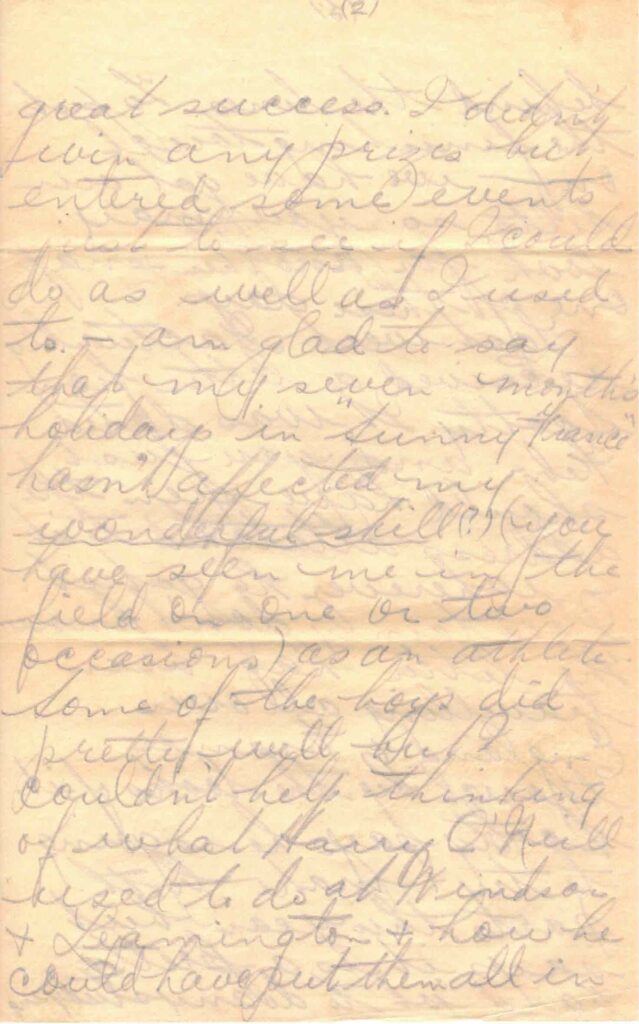 (2)
great success. I didn't
win any prizes but
entered (some) events
just to see if I could
do as well as I used
to. – am glad to say
that my seven months
holidays in "Sunny France"
hasn't affected my
wonderful skill(?) (you
have seen me in the
field on one or two
occasions) as an athlete.
Some of the boys did
pretty well but I
couldn't help thinking
of what Harry O'Neill
used to do at Windsor
+ Leamington + how he
could have put them all in